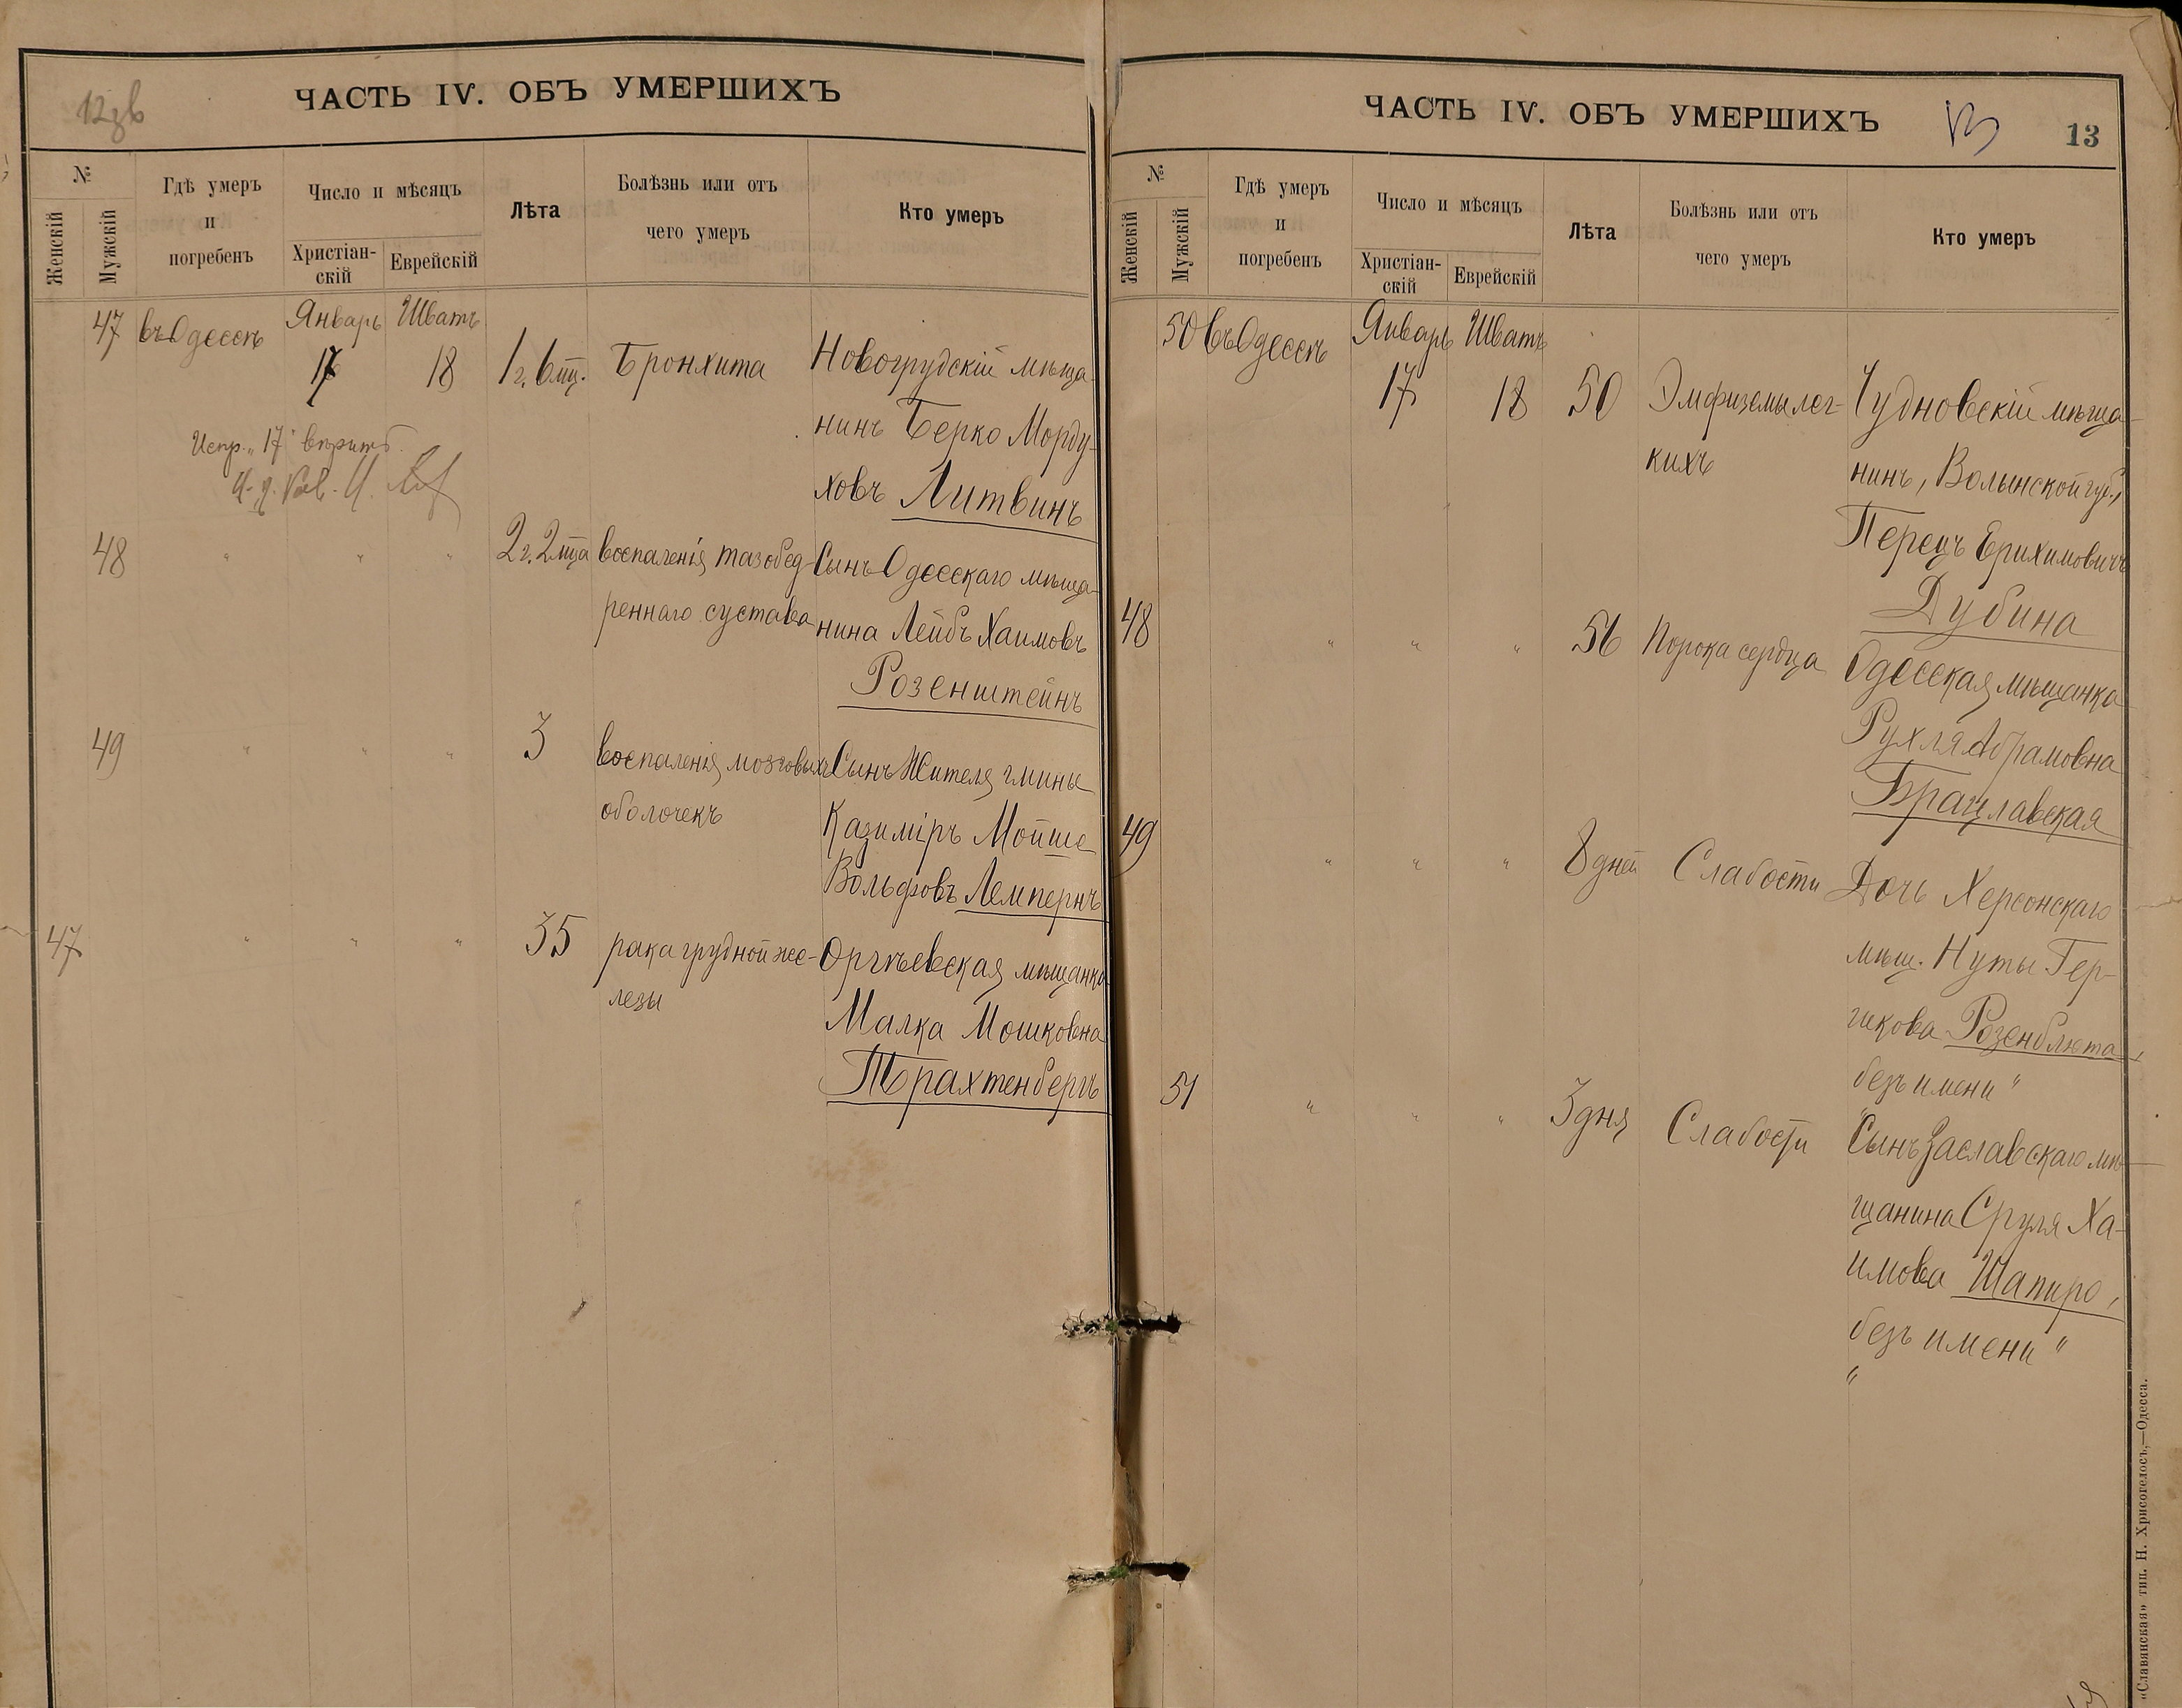 12 об
ЧАСТЬ IV. ОБЪ УМЕРШИХЪ
№
Женскій
Мужскій
Гдѣ умеръ
и
погребенъ
Число и мѣсяцъ
Христіан-
скій
Еврейскій
Лѣта
Болѣзнь или отъ
чего умеръ
Кто умеръ
47 въ Одессѣ Январь Шватъ
17 18 1 г. 6 мц. Бронхита Новогрудскій мѣща-
нинъ Берко Морду-
ховъ Литвинъ
Испр. „17" вѣрить
48 " " " 2 г. 2 мца воспаленія тазобед- Сынъ Одесскаго мѣща-
реннаго сустава нина Лейбъ Хаимовъ
Розенштейнъ
49 " " " 3 воспаленія мозговыхъ Сынъ жителя гмины
оболочекъ Казиміръ Мойше
Вольфовъ Лемпернъ
47 " " " 35 рака грудной же- Оргѣевская мѣщанка
лезы Малка Мошковна
Трахтенбергъ
ЧАСТЬ IV. ОБЪ УМЕРШИХЪ
13
№
Женскій
Мужскій
Гдѣ умеръ
и
погребенъ
Число и мѣсяцъ
Христіан-
скій
Еврейскій
Лѣта
Болѣзнь или отъ
чего умеръ
Кто умеръ
50 въ Одессѣ Январь Шватъ
17 18 50 Эмфиземы лег- Чудновскій мѣща-
кихъ нинъ, Волынской губ.,
Перецъ Ерихимовичъ
Дубина
48 " " " 56 Порока сердца Одесская мѣщанка
Рухля Абрамовна
Брацлавская
49 " " " 8 дней Слабости Дочь Херсонскаго
мѣщ. Нуты Гер-
шкова Розенблюта,
„безъ имени"
51 " " " 3 дня Слабости Сынъ Заславскаго мѣ-
щанина Сруля Ха-
имова Шапиро,
„безъ имени"
«Славянская» тип. Н. Хрисогелосъ,—Одесса.